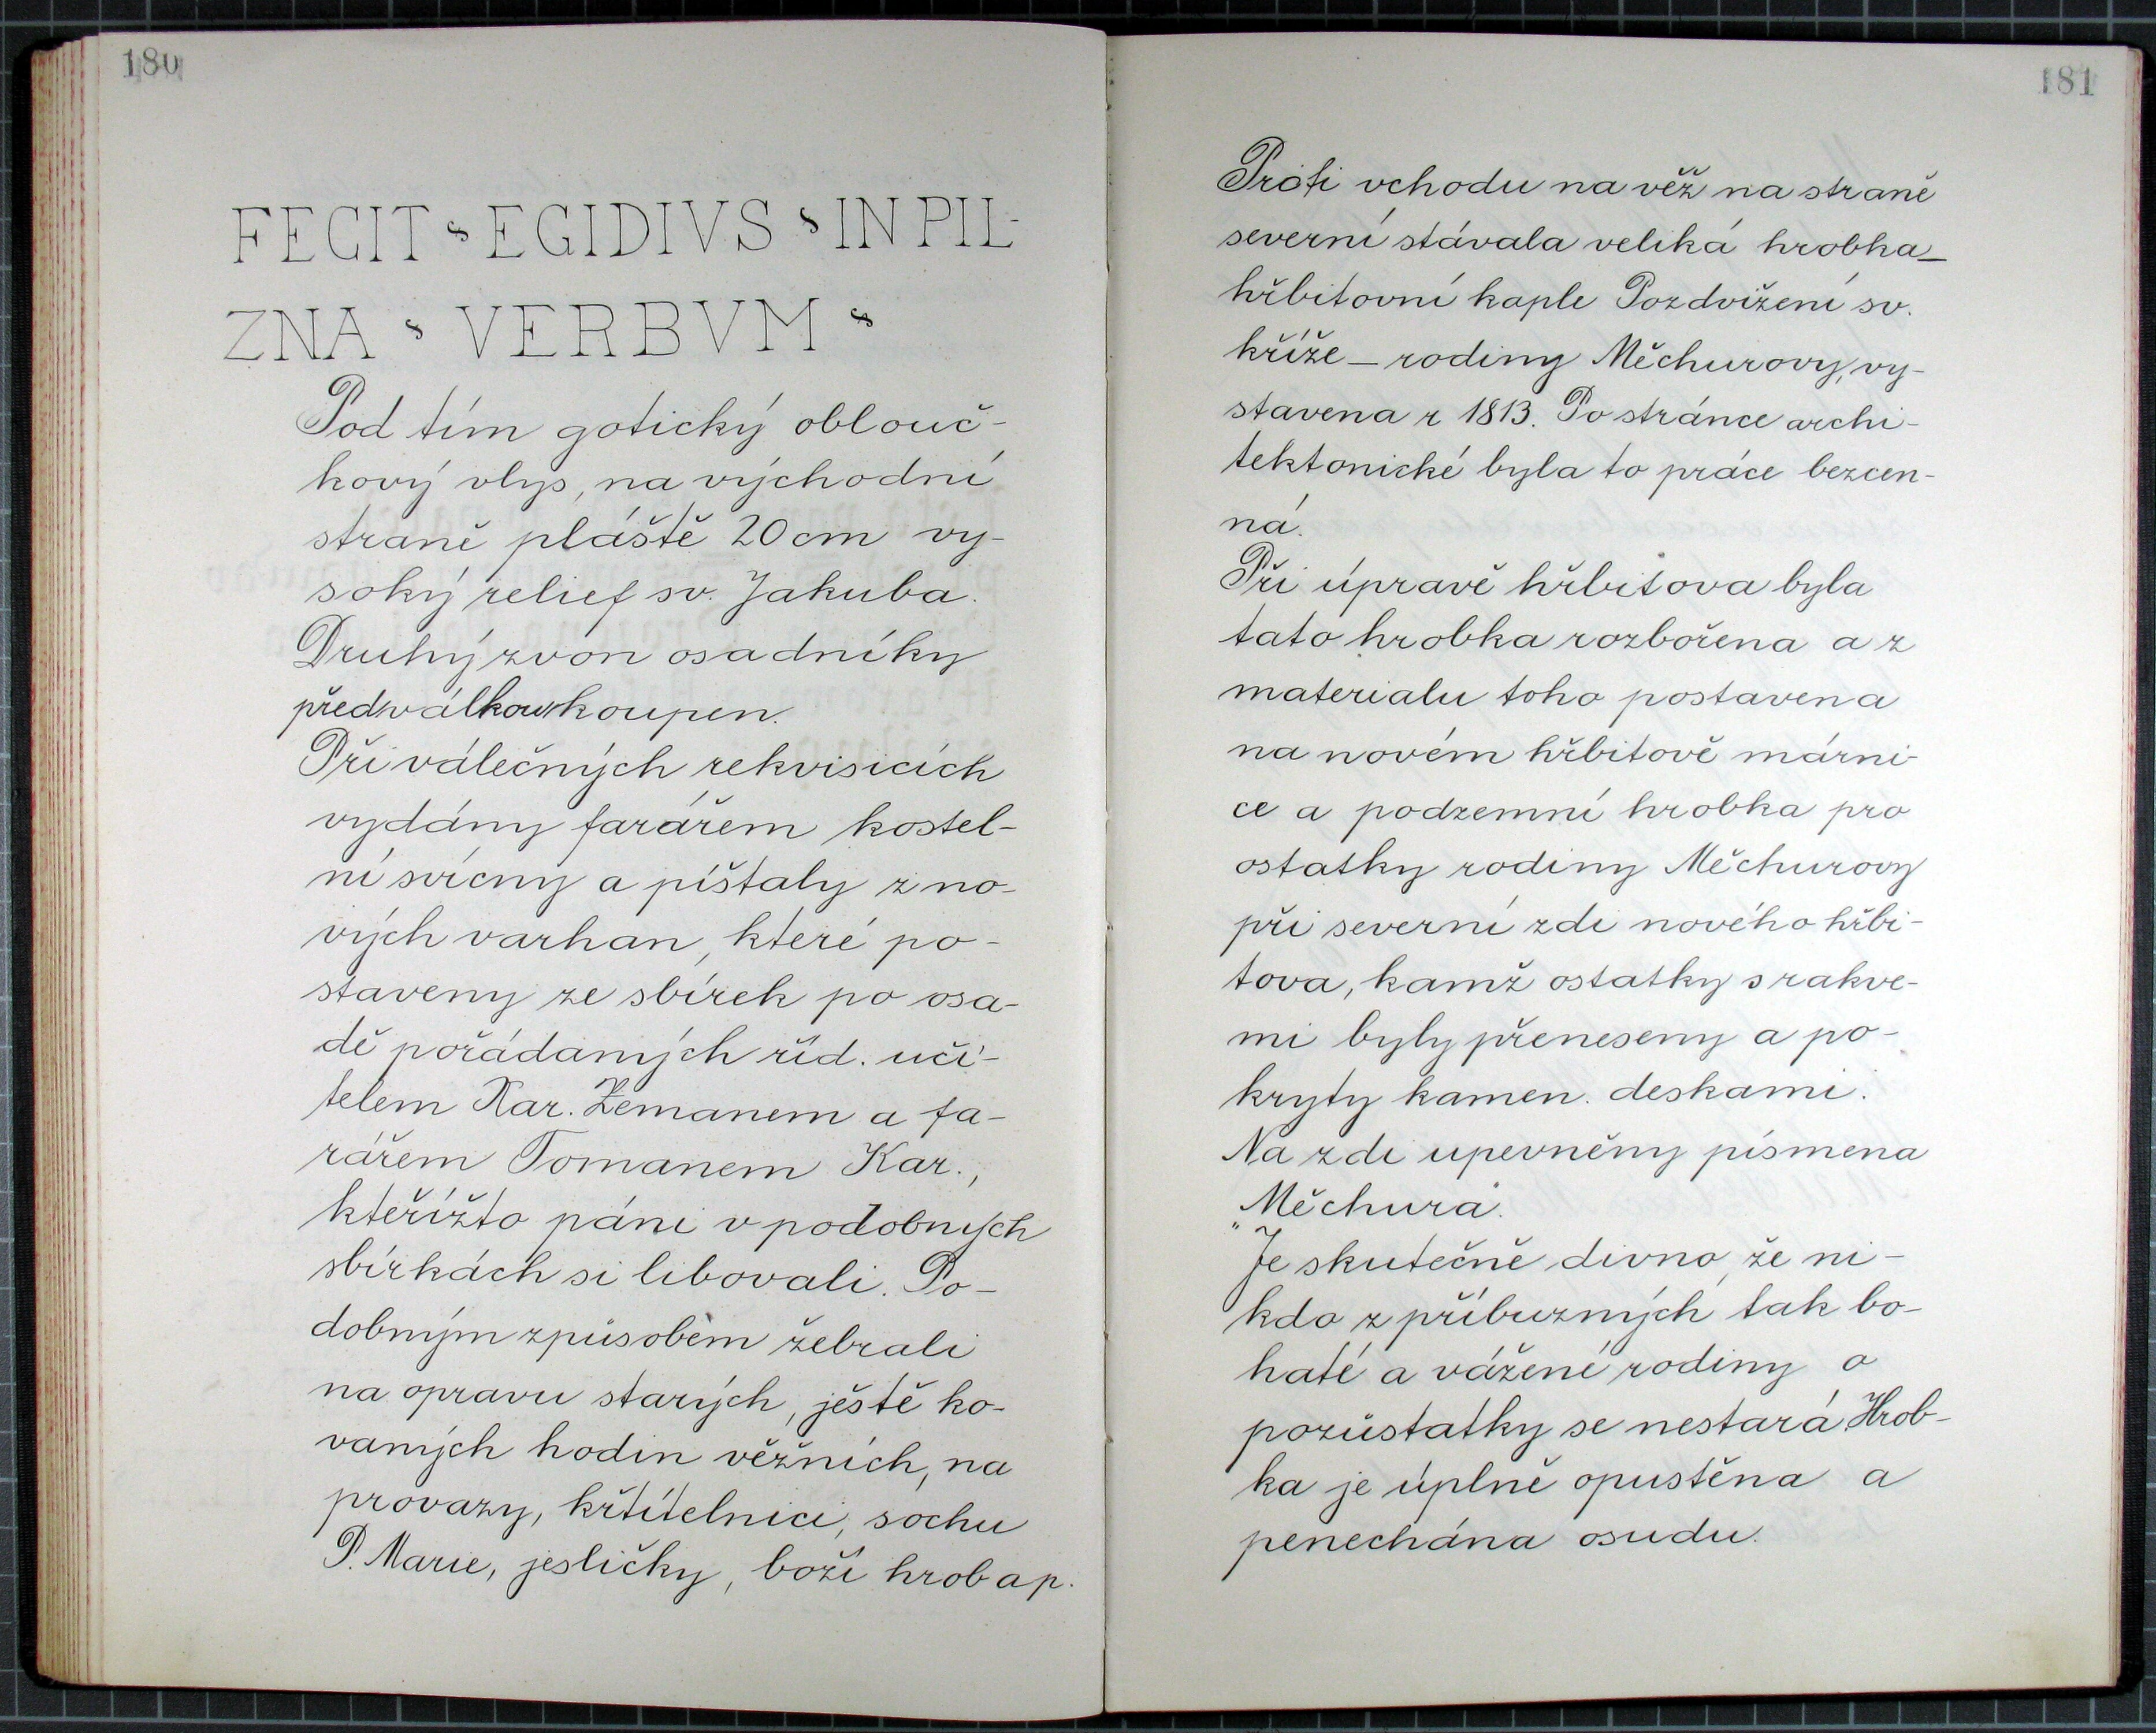 180
FECIT EGIDIVS IN PIL-
ZNA VERBVM
Pod tím gotický oblouč-
kový vlys, na východní
straně pláště 20 cm vy-
soký relief sv. Jakuba.
Druhý zvon osadníky
před válkou koupen.
Při válečných rekvisicích
vydány farářem kostel-
ní svícny a píšťaly z no-
vých varhan, které po-
staveny ze sbírek po osa-
dě pořádaných říd. uči-
telem Kar. Zemanem a fa-
rářem Tomanem Kar.,
kteřížto páni v podobných
sbírkách si libovali. Po-
dobným způsobem žebrali
na opravu starých, ještě ko-
vaných hodin věžních, na
provazy, křtitelnici, sochu
P. Marie, jesličky, boží hrob a p.
181
Proti vchodu na věž na straně
severní stávala veliká hrobka_
hřbitovní kaple Pozdvižení sv.
kříže – rodiny Měchurovy, vy-
stavena r 1813. Po stránce archi-
tektonické byla to práce bezcen-
ná.
Při úpravě hřbitova byla
tato hrobka rozbořena a z
materialu toho postavena
na novém hřbitově márni-
ce a podzemní hrobka pro
ostatky rodiny Měchurovy
při severní zdi nového hřbi-
tova, kamž ostatky s rakve-
mi byly přeneseny a po-
kryty kamen. deskami.
Na zdi upevněny písmena
„Měchura".
Je skutečně divno, že ni-
kdo z příbuzných tak bo-
haté a vážené rodiny o
pozůstatky se nestará. Hrob-
ka je úplně opustěna a
penechána osudu.